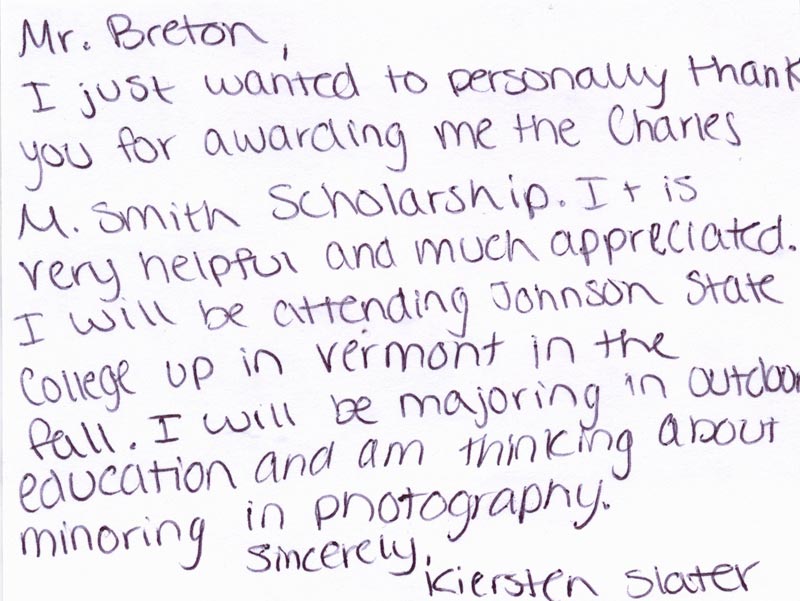 Mr. Breton,
I just wanted to personally thank
you for awarding me the Charles
M. Smith Scholarship. It is
very helpful and much appreciated.
I will be attending Johnson State
College up in Vermont in the
fall. I will be majoring in outdoor
education and am thinking about
minoring in photography.
Sincerely,
Kiersten Slater